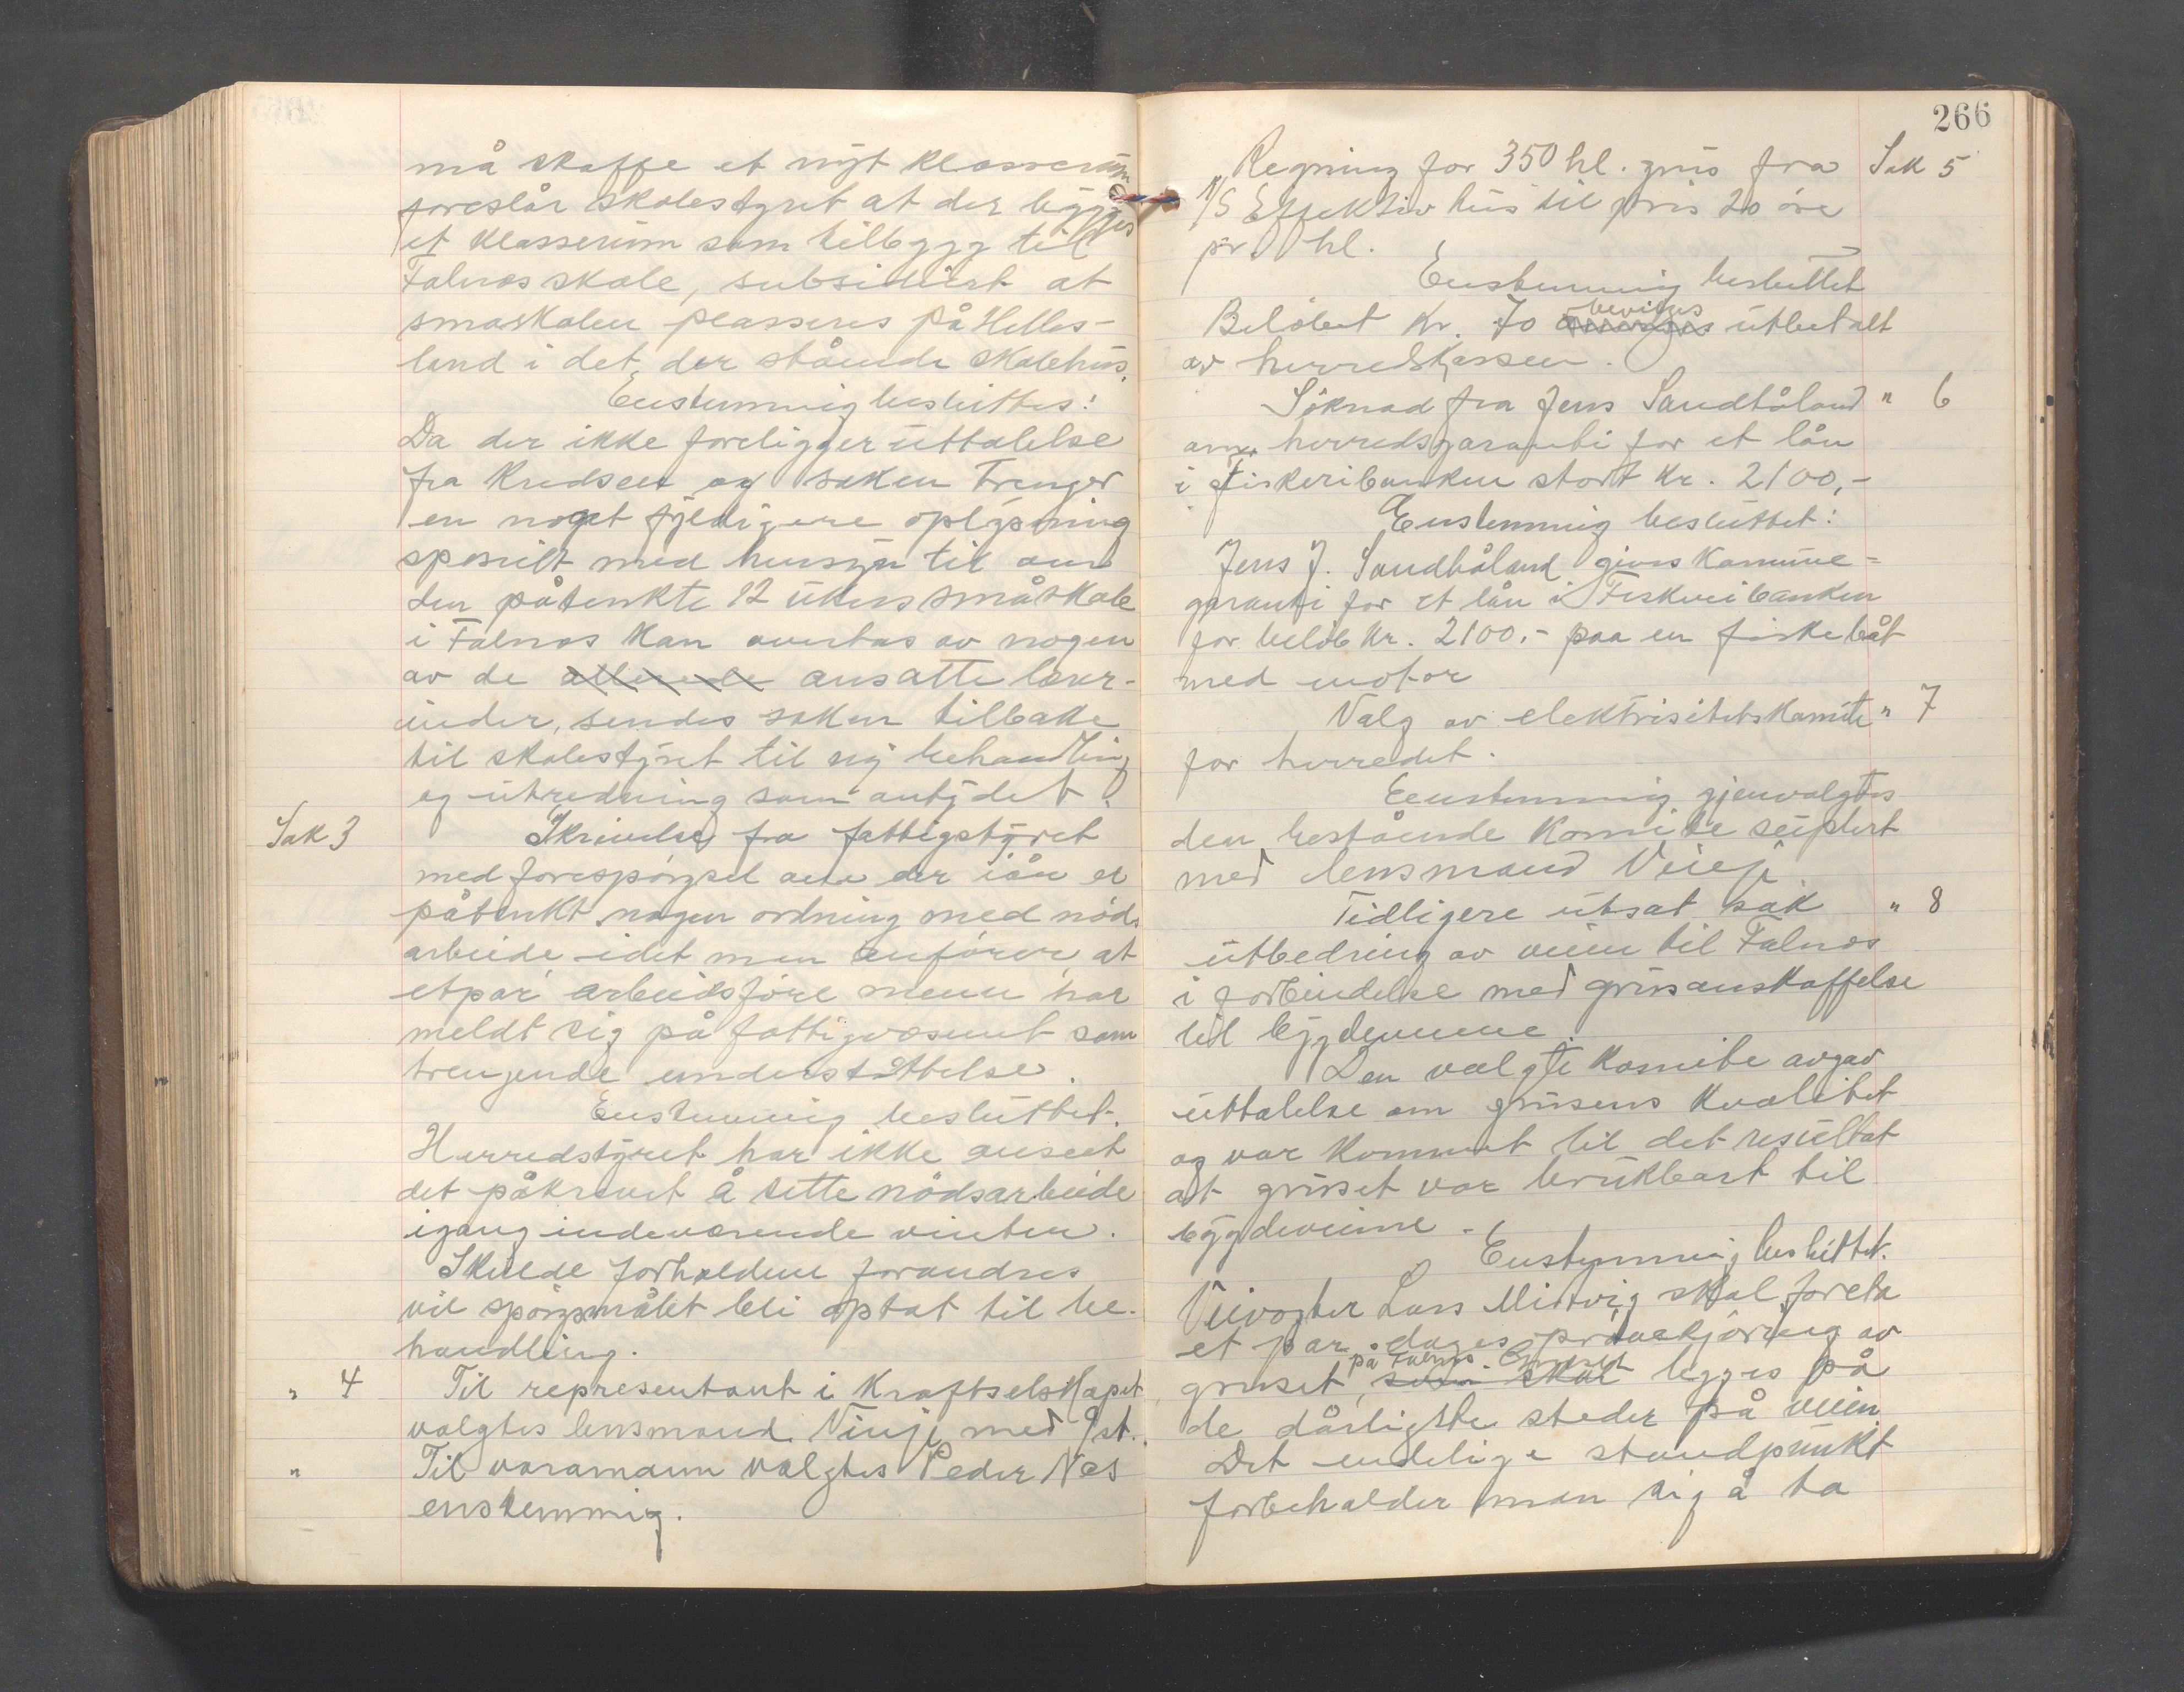 må skaffe et nyt klasserum
foreslår skolestyret at der bygges
et klasserum som tilbygg til
Falnes skole, subsidiert at
småskolen plasseres på Helles-
land i det der stående skolehus.
Enstemmig besluttes:
Da der ikke foreligger uttalelse
fra kredsen og saken trenger
en noget fyldigere oplysning
spesielt med hensyn til om
den påtenkte 12 ukers småskole
i Falnes kan overtas av nogen
av de allerede ansatte lærer-
inder, sendes saken tilbake
til skolestyret til ny behandling
og utredning som antydet.
Sak 3 Skrivelse fra fattigstyret
med forespørgsel om der iår er
påtenkt nogen ordning med nøds
arbeide idet man anfører at
etpar arbeidsføre menn har
meldt sig på fattigvæsenet som
trengende understøttelse.
Enstemmig besluttet.
Herredstyret har ikke anseet
det påkrevet å sette nödsarbeide
igang indeværende vinter.
Skulde forholdene forandres
vil spörgsmålet bli optat til be-
handling.
" 4 Til representant i Kraftselskapet
valgtes lensmand Vinje med 9 st.
" Til varamann valgtes Peder Nes
enstemmig.
266
Regning for 350 hl. grus fra Sak 5
A/S Effektiv hus til pris 20 öre
pr. hl.
Enstemmig besluttet
Belöbet kr. 70 bevilges utbetalt
av herredskassen.
Söknad fra Jens Sandhåland " 6
om herredsgaranti for et lån
i Fiskeribanken stort kr. 2100,-
Enstemmig besluttet:
Jens J. Sandhåland gives Kommune-
garanti for et lån i Fiskeribanken
for belöb kr. 2100.- paa en fiskebåt
med motor
Valg av elektrisitetskomite " 7
for herredet.
Eenstemmig gjenvalgtes
den bestående Komite suplert
med lensmand Vinje
Tidligere utsat sak " 8
utbedring av veien til Falnes
i forbindelse med grusanskaffelse
til bygdeveiene
Den valgte Komite avgav
uttalelse om grusens kvalitet
og var kommet til det resultat
at gruset var brukbart til
bygdeveiene.
Enstemmig besluttet.
Veivogter Lars Mittvig skal foreta
et par dages prövekjöring av
på Falnes. Gruset
gruset, som skal legges på
de dårligste steder på veien
Det endelige standpunkt
forbeholder man sig å ta